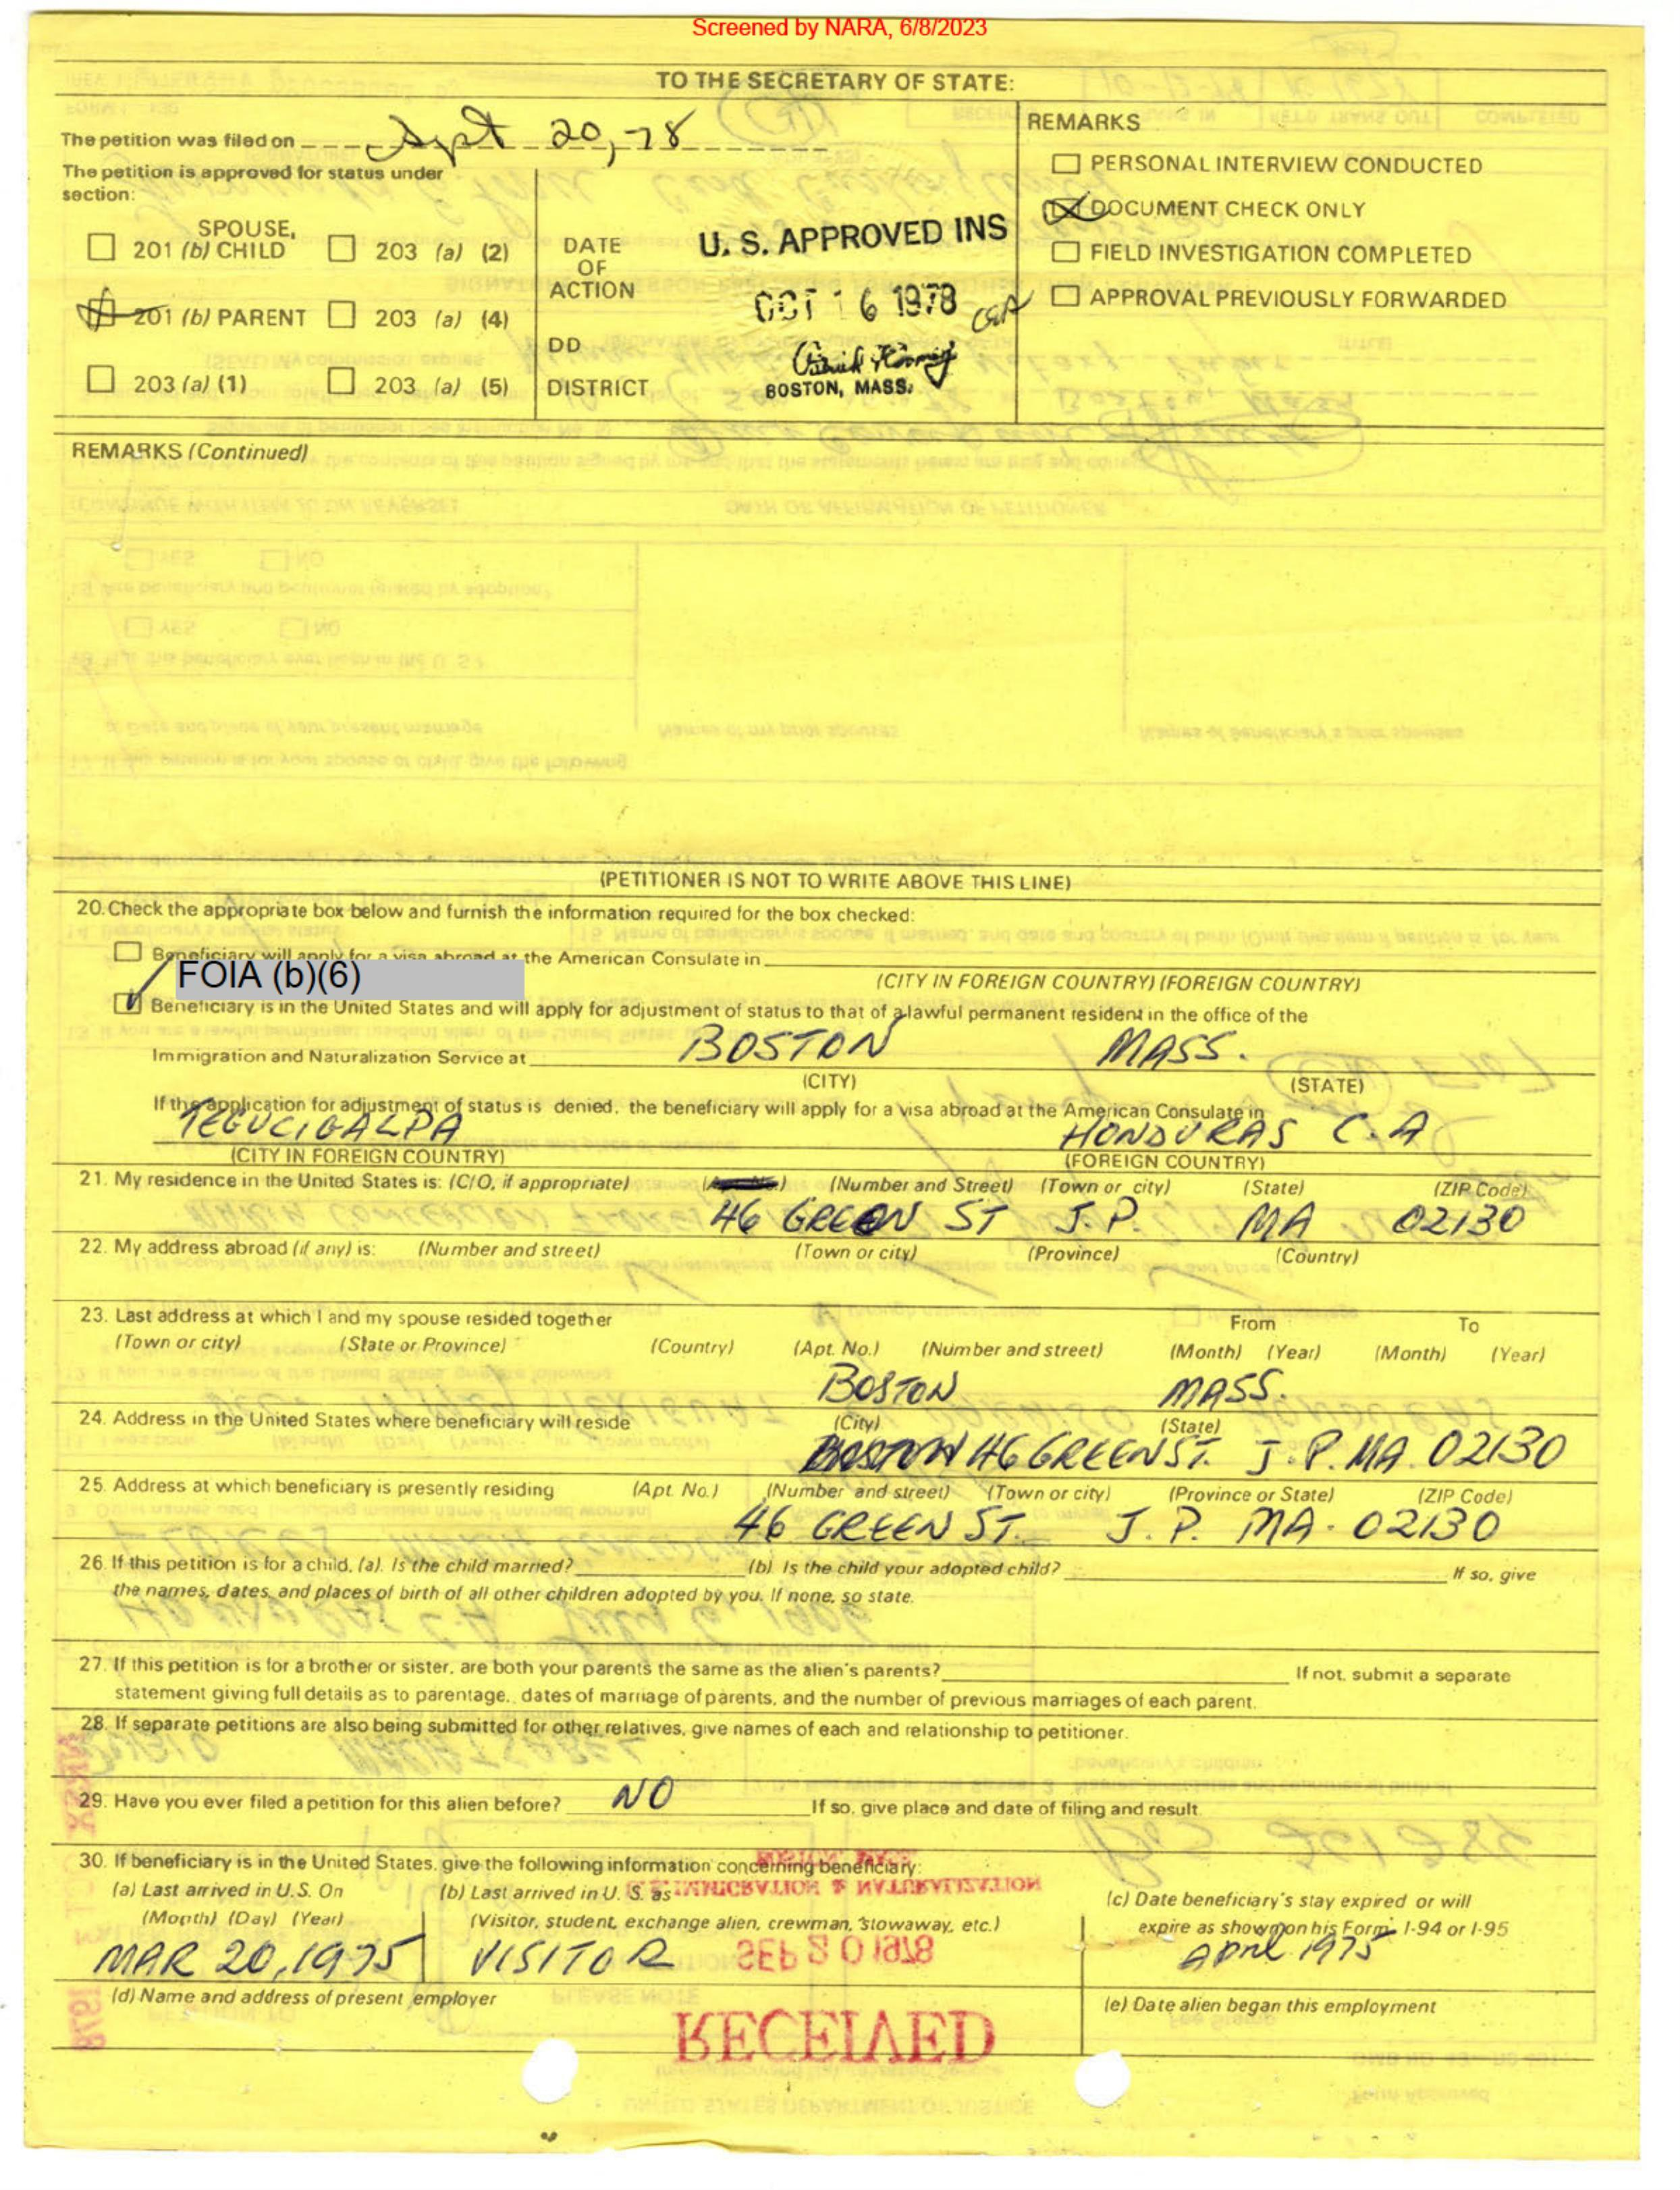 Screened by NARA, 6/8/2023
TO THE SECRETARY OF STATE:
The petition was filed on Sept 20, 78
The petition is approved for status under
section:
SPOUSE,
201 (b) CHILD 203 (a) (2)
201 (b) PARENT 203 (a) (4)
203 (a) (1) 203 (a) (5)
DATE
OF
ACTION
DD
DISTRICT
U. S. APPROVED INS
OCT 16 1978
BOSTON, MASS.
REMARKS
PERSONAL INTERVIEW CONDUCTED
DOCUMENT CHECK ONLY
FIELD INVESTIGATION COMPLETED
APPROVAL PREVIOUSLY FORWARDED
REMARKS (Continued)
(PETITIONER IS NOT TO WRITE ABOVE THIS LINE)
20. Check the appropriate box below and furnish the information required for the box checked:
Beneficiary will apply for a visa abroad at the American Consulate in
FOIA (b)(6)
(CITY IN FOREIGN COUNTRY) (FOREIGN COUNTRY)
Beneficiary is in the United States and will apply for adjustment of status to that of a lawful permanent resident in the office of the
Immigration and Naturalization Service at BOSTON MASS.
(CITY) (STATE)
If the application for adjustment of status is denied, the beneficiary will apply for a visa abroad at the American Consulate in
TEGUCIGALPA HONDURAS C.A
(CITY IN FOREIGN COUNTRY) (FOREIGN COUNTRY)
21. My residence in the United States is: (C/O, if appropriate) (Number and Street) (Town or city) (State) (ZIP Code)
46 GREEN ST J.P. MA 02130
22. My address abroad (if any) is: (Number and street) (Town or city) (Province) (Country)
23. Last address at which I and my spouse resided together From To
(Town or city) (State or Province) (Country) (Apt. No.) (Number and street) (Month) (Year) (Month) (Year)
BOSTON MASS.
24. Address in the United States where beneficiary will reside (City) (State)
BOSTON 46 GREEN ST. J.P. MA. 02130
25. Address at which beneficiary is presently residing (Apt. No.) (Number and street) (Town or city) (Province or State) (ZIP Code)
46 GREEN ST. J. P. MA. 02130
26. If this petition is for a child, (a). Is the child married? (b) Is the child your adopted child? If so, give
the names, dates, and places of birth of all other children adopted by you. If none, so state.
27. If this petition is for a brother or sister, are both your parents the same as the alien's parents? If not, submit a separate
statement giving full details as to parentage, dates of marriage of parents, and the number of previous marriages of each parent.
28. If separate petitions are also being submitted for other relatives, give names of each and relationship to petitioner.
29. Have you ever filed a petition for this alien before? NO If so, give place and date of filing and result.
30. If beneficiary is in the United States, give the following information concerning beneficiary:
(a) Last arrived in U.S. On (b) Last arrived in U. S. as (c) Date beneficiary's stay expired or will
(Month) (Day) (Year) (Visitor, student, exchange alien, crewman, stowaway, etc.) expire as shown on his Form I-94 or I-95
MAR 20, 1975 VISITOR April 1975
SEP 20 1978
(d) Name and address of present employer (e) Date alien began this employment
RECEIVED